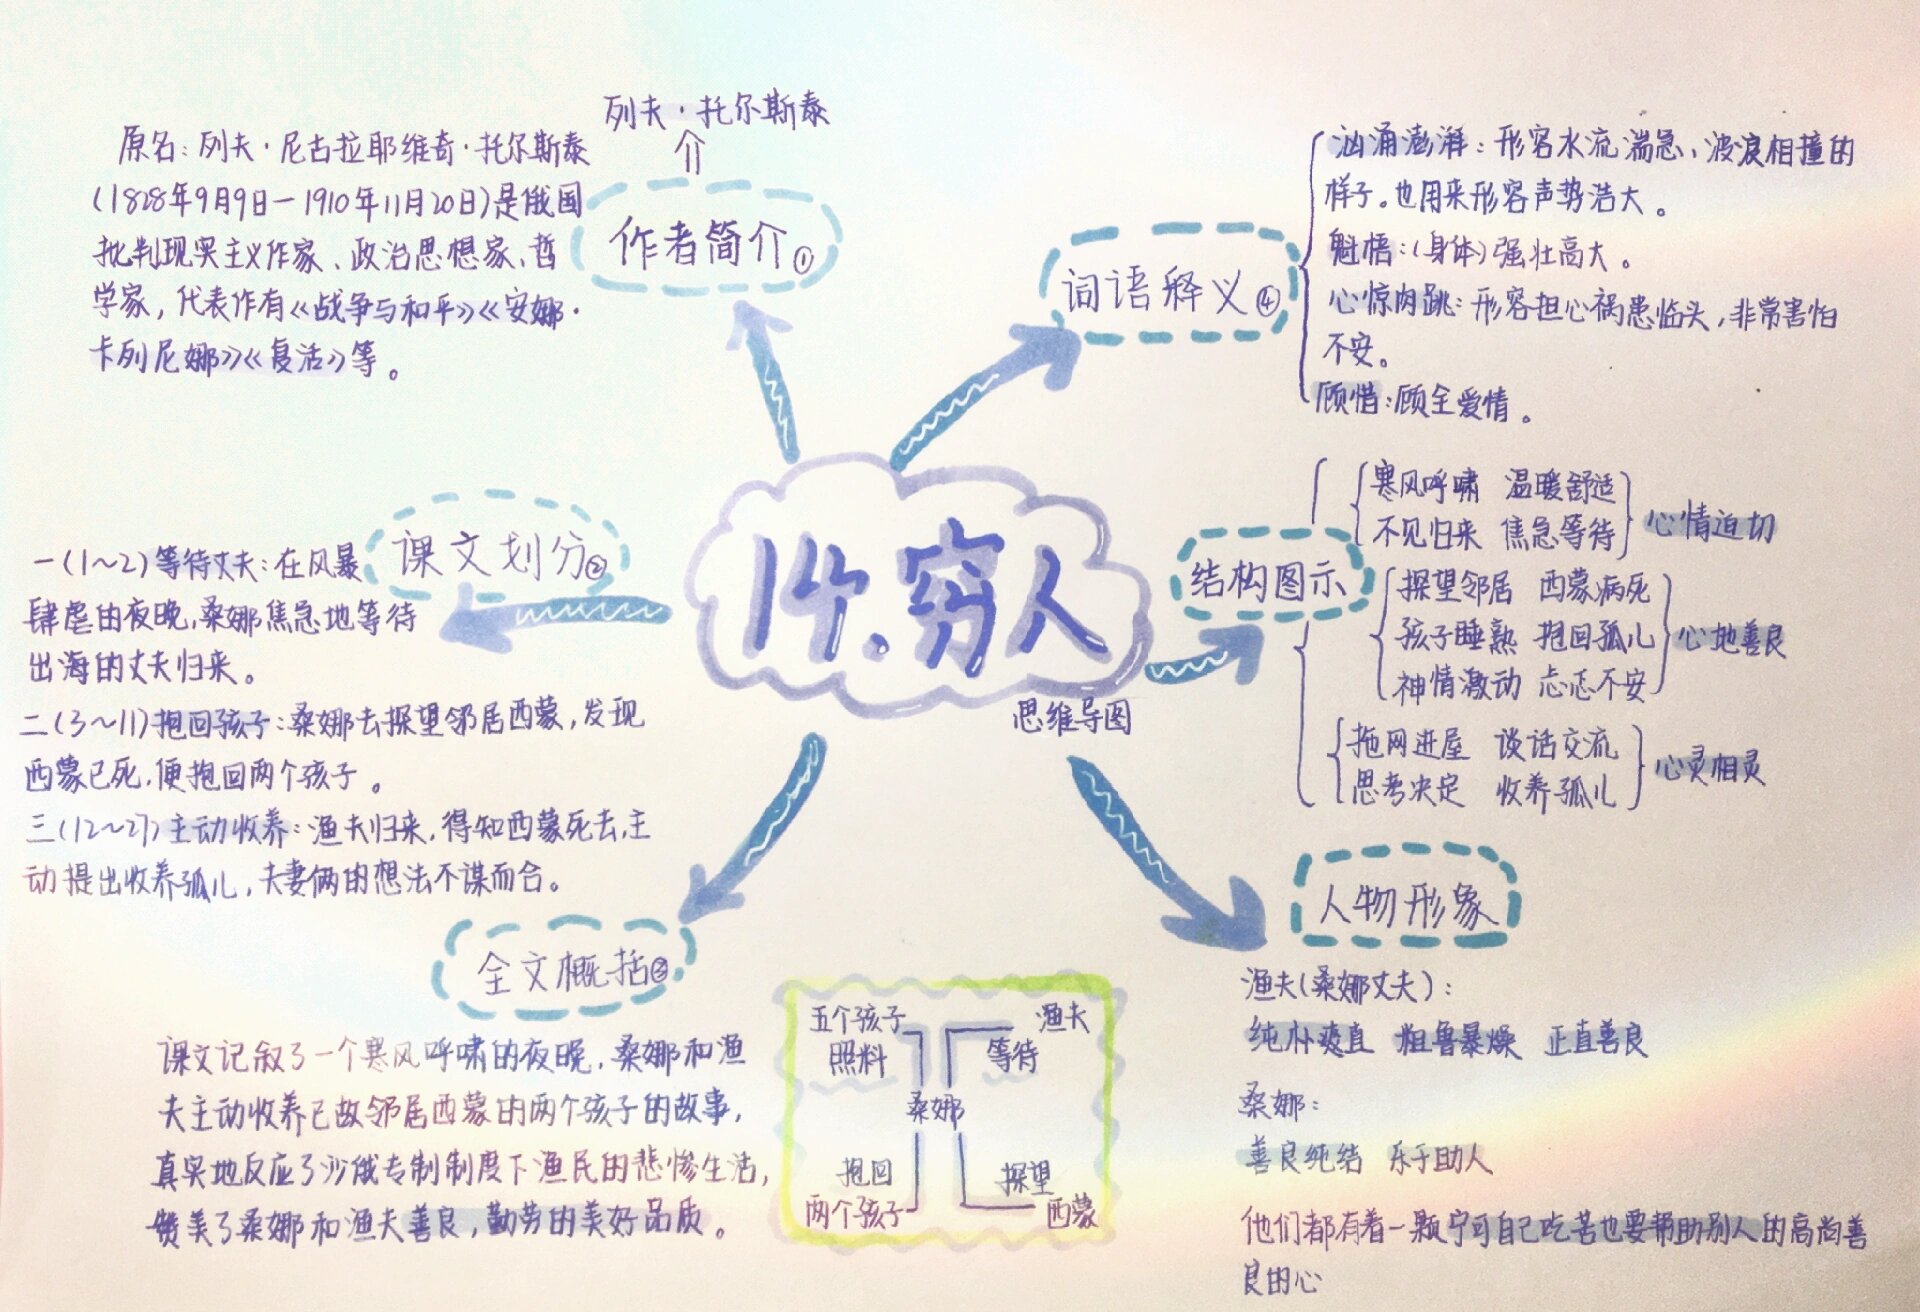 列夫·托尔斯泰
作者简介①
原名：列夫·尼古拉耶维奇·托尔斯泰
(1828年9月9日—1910年11月20日)是俄国
批判现实主义作家、政治思想家、哲
学家，代表作有《战争与和平》《安娜·
卡列尼娜》《复活》等。
词语释义④
汹涌澎湃：形容水流湍急、波浪相撞的
样子。也用来形容声势浩大。
魁梧：(身体)强壮高大。
心惊肉跳：形容担心祸患临头，非常害怕
不安。
顾惜：顾全爱情。
14、穷人
思维导图
课文划分②
一(1~2)等待丈夫：在风暴
肆虐的夜晚，桑娜焦急地等待
出海的丈夫归来。
二(3~11)抱回孩子：桑娜去探望邻居西蒙，发现
西蒙已死，便抱回两个孩子。
三(12~27)主动收养：渔夫归来，得知西蒙死去，主
动提出收养孤儿，夫妻俩的想法不谋而合。
结构图示
寒风呼啸 温暖舒适
不见归来 焦急等待
心情迫切
探望邻居 西蒙病死
孩子睡熟 抱回孤儿
神情激动 忐忑不安
心地善良
拖网进屋 谈话交流
思考决定 收养孤儿
心灵相灵
全文概括③
课文记叙了一个寒风呼啸的夜晚，桑娜和渔
夫主动收养已故邻居西蒙的两个孩子的故事，
真实地反应了沙俄专制制度下渔民的悲惨生活，
赞美了桑娜和渔夫善良，勤劳的美好品质。
五个孩子
照料
渔夫
等待
桑娜
抱回
两个孩子
探望
西蒙
人物形象
渔夫(桑娜丈夫)：
纯朴爽直 粗鲁暴燥 正直善良
桑娜：
善良纯结 乐于助人
他们都有着一颗宁可自己吃苦也要帮助别人的高尚善
良的心